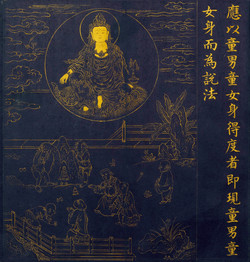 應以童男童女身得度者即現童男童
女身而為說法